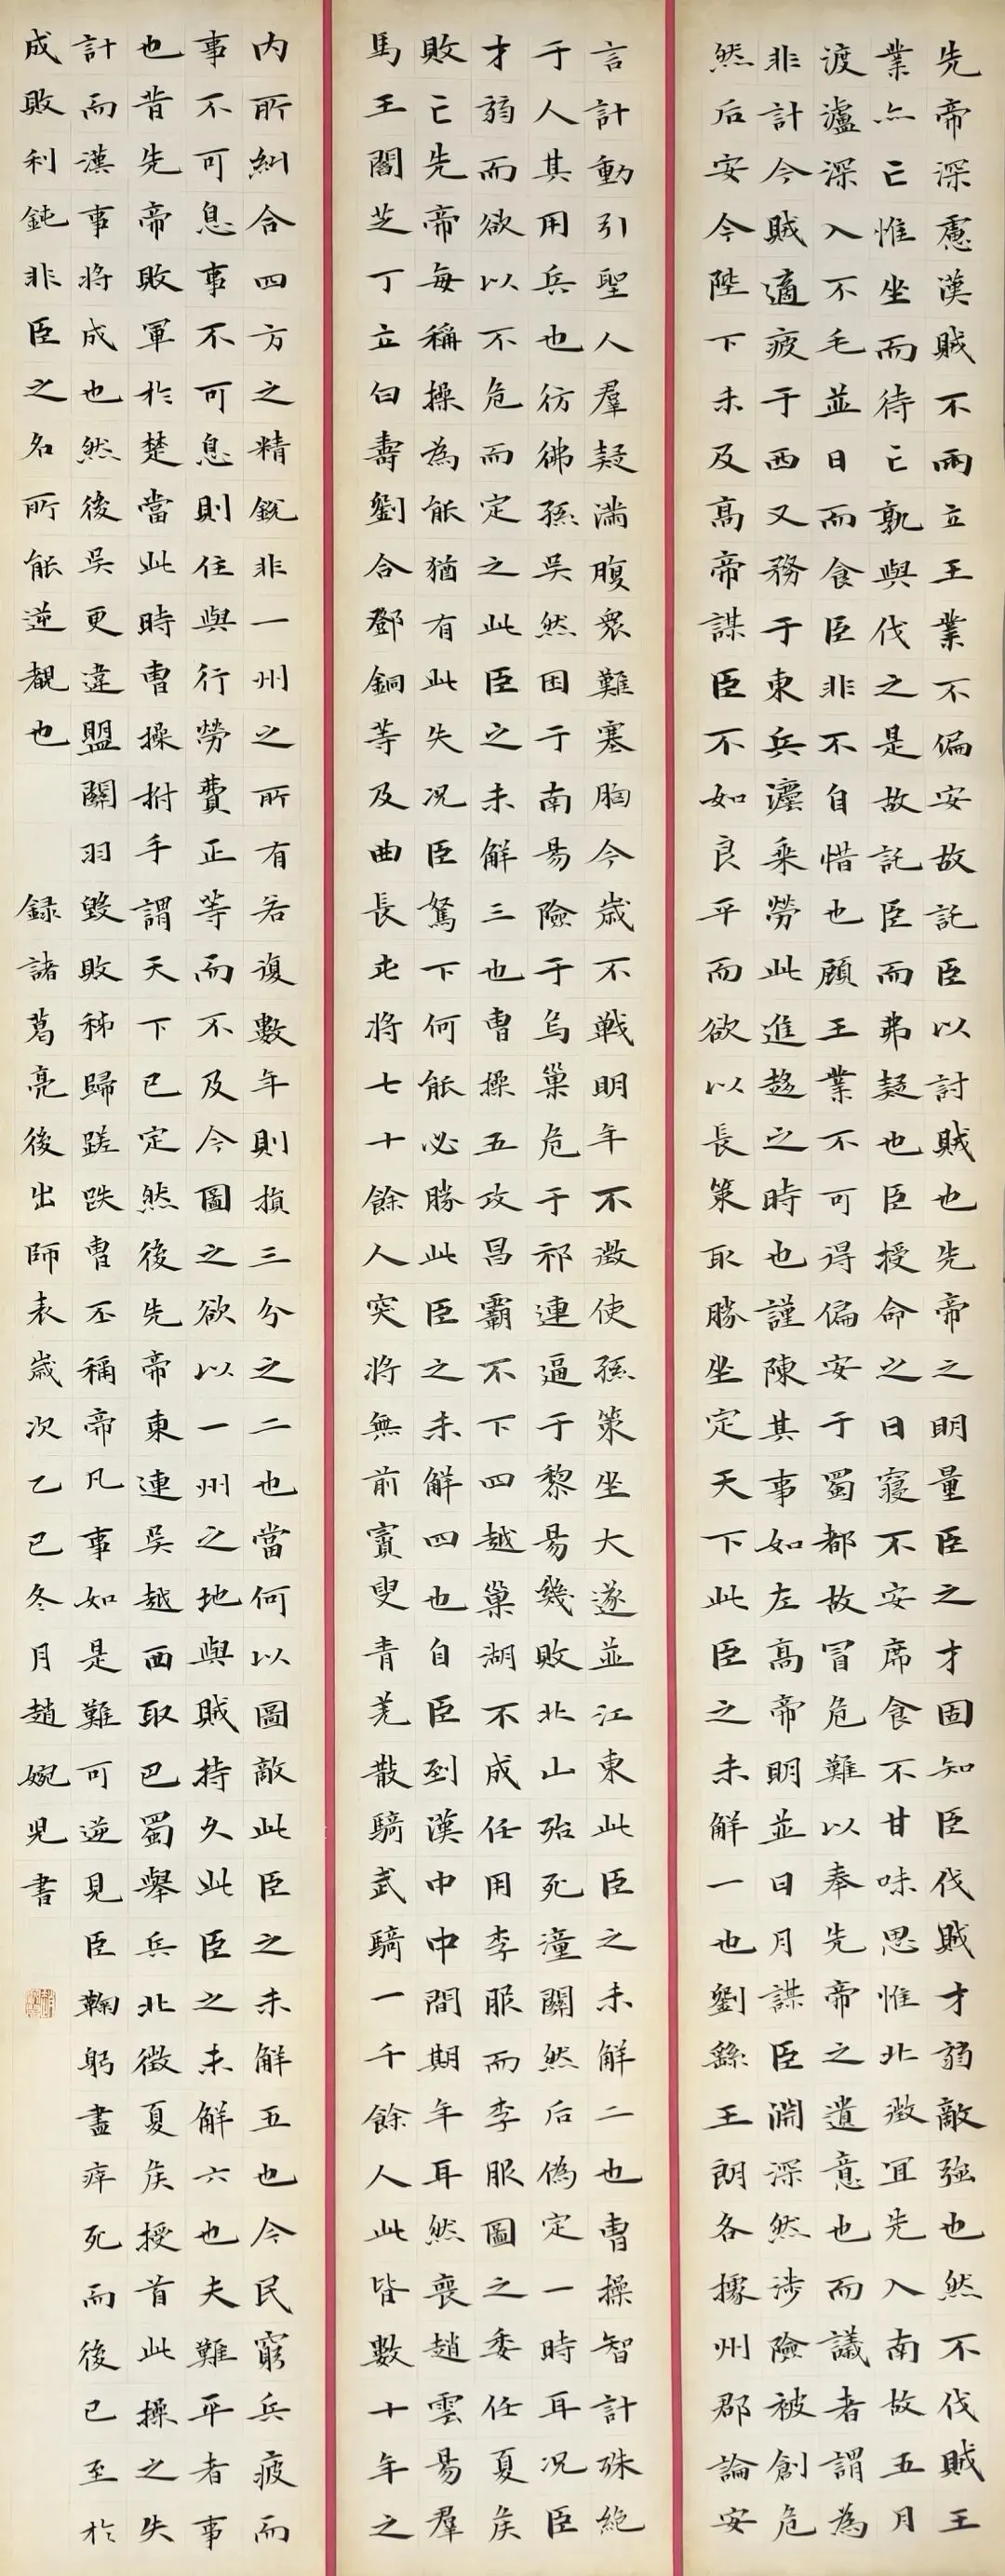 先帝深慮漢賊不兩立王業不偏安故託臣以討賊也先帝之明量臣之才固知臣伐賊才弱敵強也然不伐賊王
業亦亡惟坐而待亡孰與伐之是故託臣而弗疑也臣授命之日寢不安席食不甘味思惟北徵宜先入南故五月
渡瀘深入不毛並日而食臣非不自惜也顧王業不可得偏安于蜀都故冒危難以奉先帝之遺意也而議者謂為
非計今賊適疲于西又務于東兵灋乘勞此進趨之時也謹陳其事如左高帝明並日月謀臣淵深然涉險被創危
然后安今陛下未及高帝謀臣不如良平而欲以長策取勝坐定天下此臣之未解一也劉繇王朗各據州郡論安
言計動引聖人羣疑滿腹衆難塞胸今歲不戰明年不徵使孫策坐大遂並江東此臣之未解二也曹操智計殊絕
于人其用兵也彷彿孫吳然困于南易險于烏巢危于祁連逼于黎易幾敗北山殆死潼關然后偽定一時耳況臣
才弱而欲以不危而定之此臣之未解三也曹操五攻昌霸不下四越巢湖不成任用李服而李服圖之委任夏侯
敗亡先帝每稱操為能猶有此失況臣駑下何能必勝此臣之未解四也自臣到漢中中間期年耳然喪趙雲易羣
馬王閻芝丁立白壽劉合鄧銅等及曲長屯將七十餘人突將無前賨叟青羌散騎武騎一千餘人此皆數十年之
内所糾合四方之精銳非一州之所有若復數年則損三分之二也當何以圖敵此臣之未解五也今民窮兵疲而
事不可息事不可息則住與行勞費正等而不及今圖之欲以一州之地與賊持久此臣之未解六也夫難平者事
也昔先帝敗軍於楚當此時曹操拊手謂天下已定然後先帝東連吳越西取巴蜀舉兵北徵夏侯授首此操之失
計而漢事將成也然後吳更違盟關羽毀敗秭歸蹉跌曹丕稱帝凡事如是難可逆見臣鞠躬盡瘁死而後已至於
成敗利鈍非臣之名所能逆覩也 錄諸葛亮後出師表歲次乙巳冬月趙婉兒書